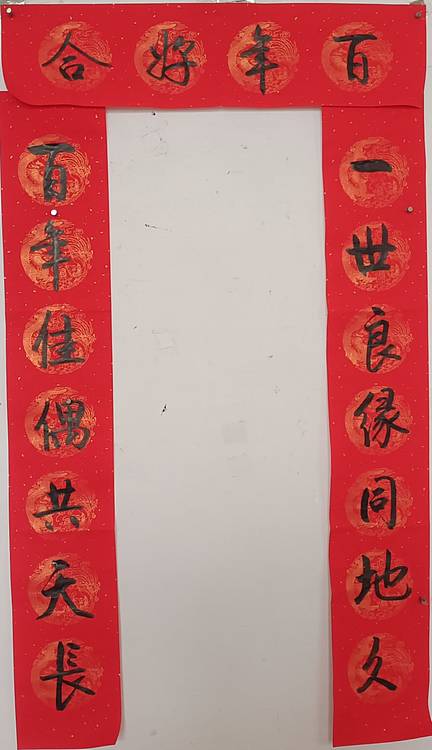 百年好合
一世良缘同地久
百年佳偶共天長